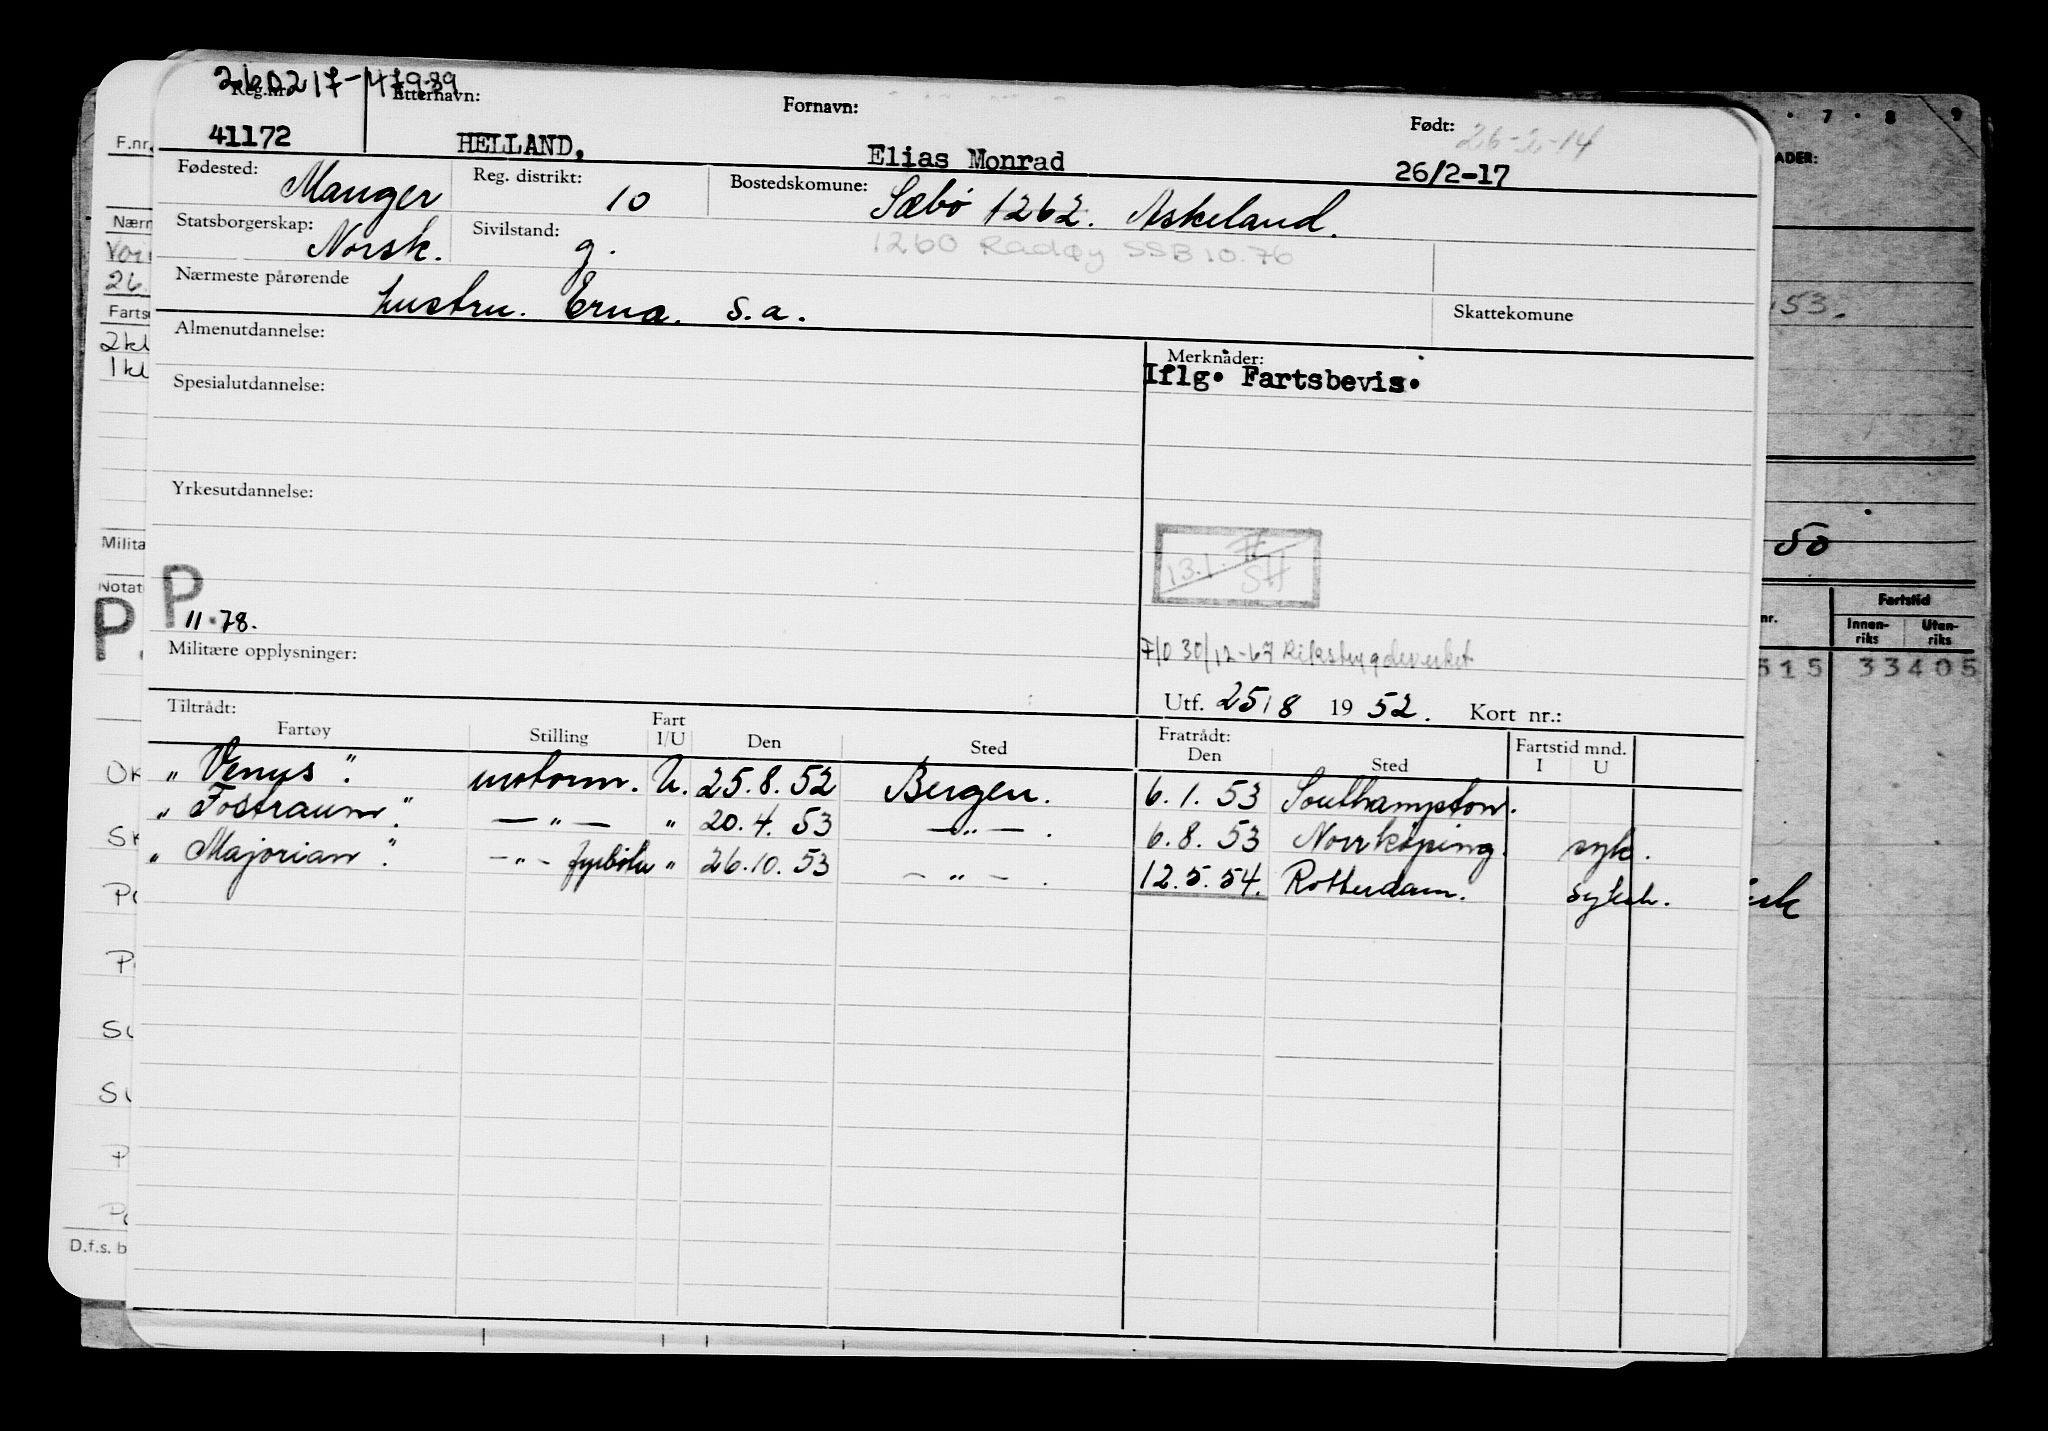 260217-47989
Reg.nr. Etternavn: Fornavn: Født: 26-2-14
41172 HELLAND, Elias Monrad 26/2-17
Fødested: Manger Reg. distrikt: 10 Bostedskomune: Sæbø 1262. Askeland.
Statsborgerskap: Norsk. Sivilstand: g. 1260 Radøy SSB 10.76
Nærmeste pårørende hustru. Erna. s.a. Skattekomune
Almenutdannelse: Merknader:
Iflg. Fartsbevis.
Spesialutdannelse:
Yrkesutdannelse:
13.1. SH
P
11.78.
Militære opplysninger: F/O 30/12-67 Rikstrygdeverket
Utf. 25/8 19 52. Kort nr.:
Tiltrådt: Fratrådt:
Fartøy Stilling Fart I/U Den Sted Den Sted Fartstid mnd. I U
„ Venus ". motorm. U. 25.8.52 Bergen. 6.1.53 Southampton.
„ Fostraum ". — " — " 20.4.53 — " — . 6.8.53 Norrköping. syk.
„ Majorian ". - " - fyrbøter " 26.10.53 — " — . 12.5.54. Rotterdam. sykeh.
F.nr.
Nærm
26.
Farts
2kl
1kl
Milita
Notat
P.
OK
SK
Po
P
SU
SU
P
Po
D.f.s. b
. 7 . 8 9
ADER:
53.
50
Fartstid
nr. Innen-riks Uten-riks
515 33405